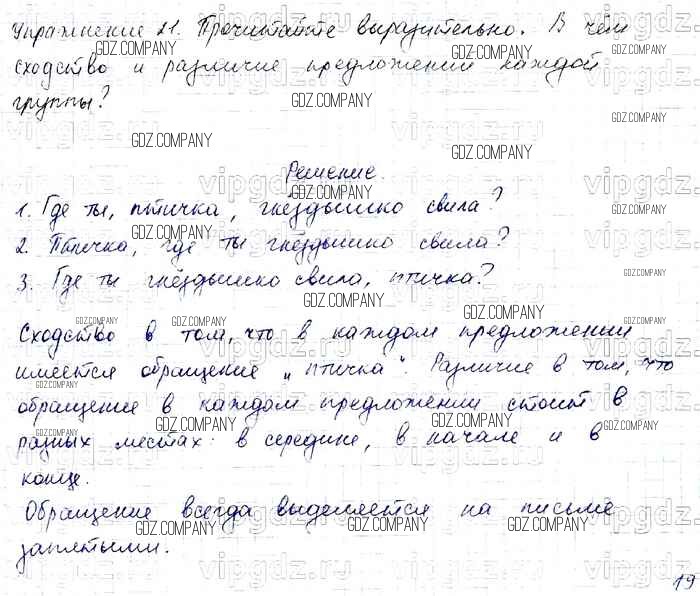 Упражнение 21. Прочитайте выразительно. В чём
сходство и различие предложений каждой
группы?
Решение.
1. Где ты, птичка, гнёздышко свила?
2. Птичка, где ты гнёздышко свила?
3. Где ты гнёздышко свила, птичка?
Сходство в том, что в каждом предложении
имеется обращение „птичка". Различие в том, что
обращение в каждом предложении стоит в
разных местах: в середине, в начале и в
конце.
Обращение всегда выделяется на письме
запятыми.
19